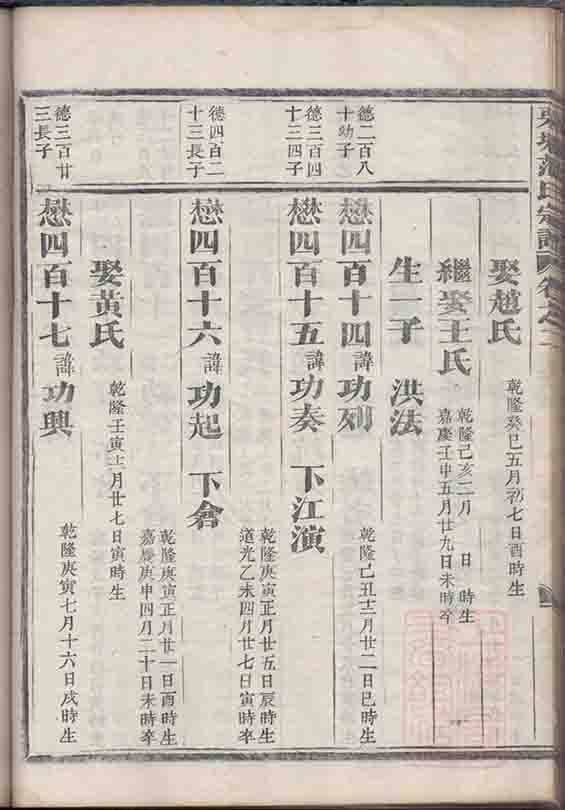 范氏宗譜 卷之二
娶趙氏 乾隆癸巳五月初七日酉時生
繼娶王氏 乾隆己亥二月 日 時生
嘉慶壬申五月廿九日未時卒
生一子 洪法
德二百八
十幼子
懋四百十四諱功列 乾隆己丑十二月廿二日巳時生
德三百四
十三四子
懋四百十五諱功奏 下江演
乾隆庚寅正月廿五日辰時生
道光乙未四月廿七日寅時卒
德四百二
十三長子
懋四百十六諱功起 下倉
乾隆庚寅正月廿一日酉時生
嘉慶庚申四月二十日未時卒
娶黃氏 乾隆壬寅十二月廿七日寅時生
德三百廿
三長子
懋四百十七諱功興 乾隆庚寅七月十六日戌時生